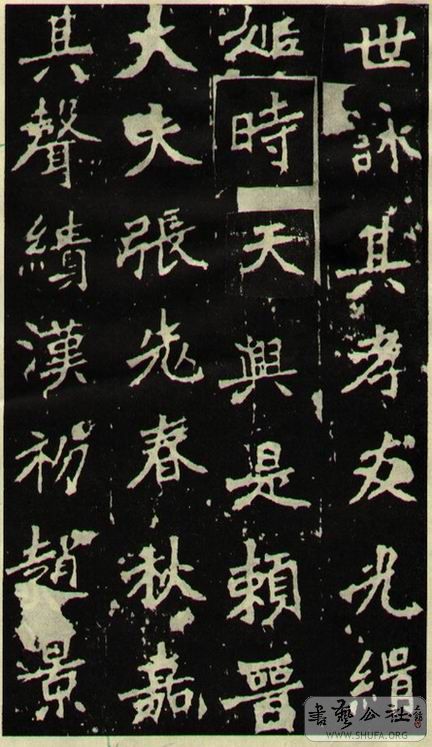 世詠其孝友光緝
姬時天興是賴晉
大夫張老春秋嘉
其聲績漢初趙景
書藝公社
WWW.SHUFA.ORG